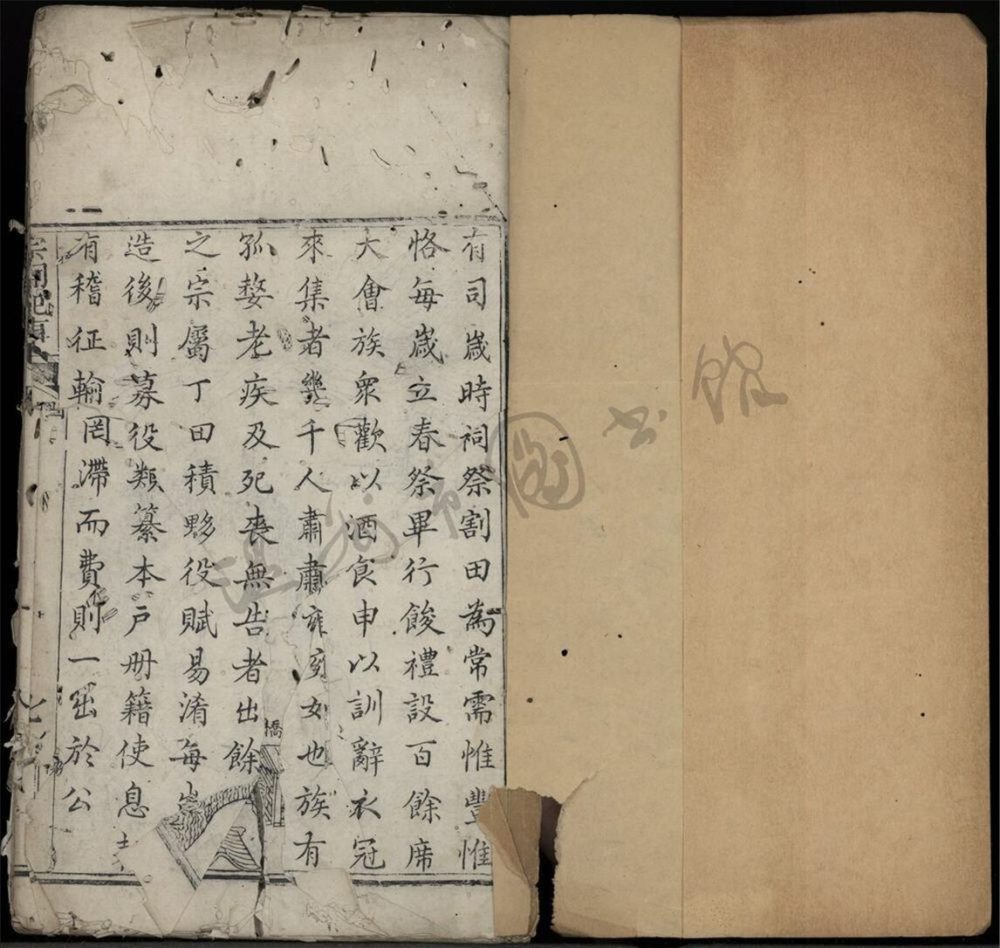 有司歲時祠祭割田為常需惟豐惟
恪每歲立春祭畢行餕禮設百餘席
大會族衆歡以酒食申以訓辭衣冠
來集者幾千人肅肅雍雍如也族有
孤嫠老疾及死喪無告者出餘
之宗屬丁田積夥役賦易淆每
造後則募役類纂本戶册籍使息
有稽征輸罔滯而費則一出於公
橋
圖書館